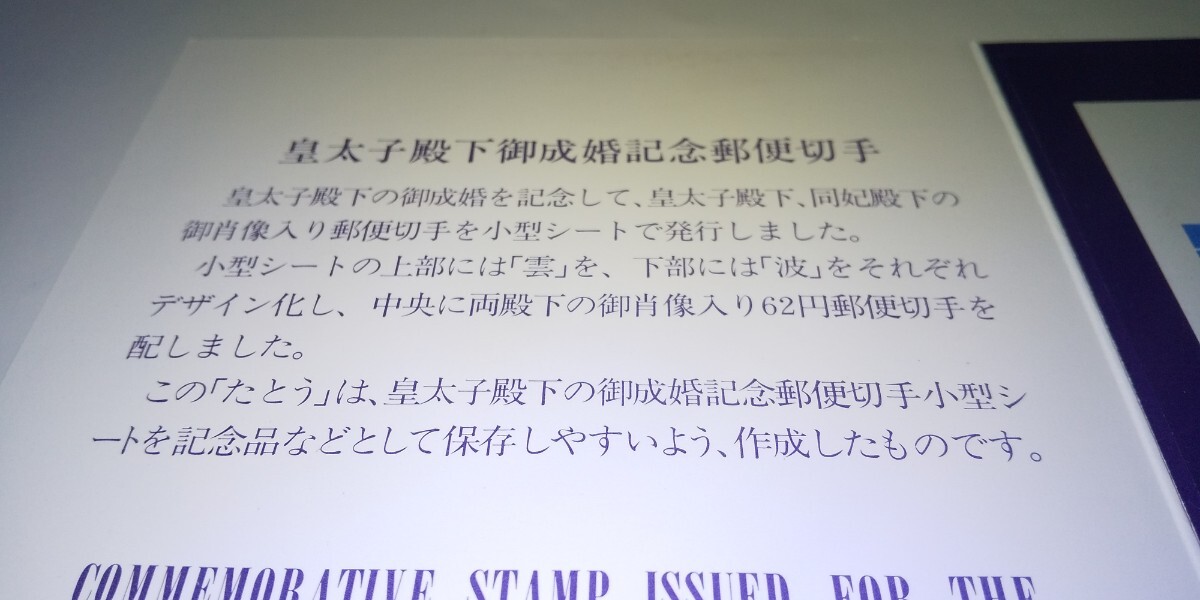 皇太子殿下御成婚記念郵便切手
皇太子殿下の御成婚を記念して、皇太子殿下、同妃殿下の
御肖像入り郵便切手を小型シートで発行しました。
小型シートの上部には「雲」を、下部には「波」をそれぞれ
デザイン化し、中央に両殿下の御肖像入り62円郵便切手を
配しました。
この「たとう」は、皇太子殿下の御成婚記念郵便切手小型シ
ートを記念品などとして保存しやすいよう、作成したものです。
COMMEMORATIVE STAMP ISSUED FOR THE